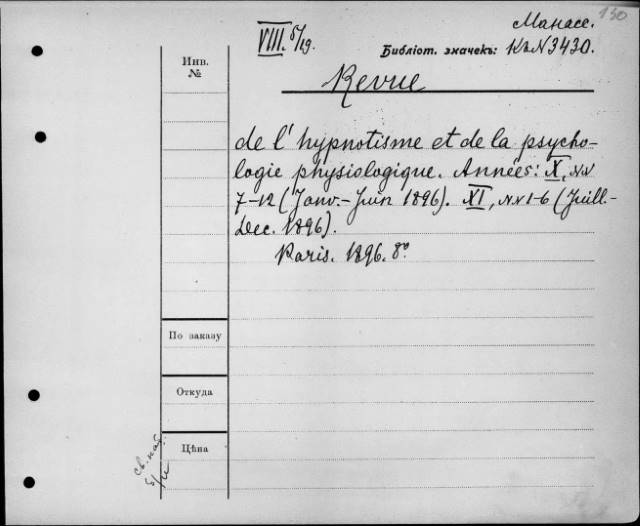 130
Манасс.
VIII. 5/19.
Библіот. значекъ: К. N 3430.
Инв.
№
Revue
de l'hypnotisme et de la psycho-
logie physiologique. Années: X, NN
7-12 (Janv.-Juin 1896). XI, NN 1-6 (Juill.-
Dec. 1896).
Paris. 1896. 8°
По заказу
Откуда
Цѣна